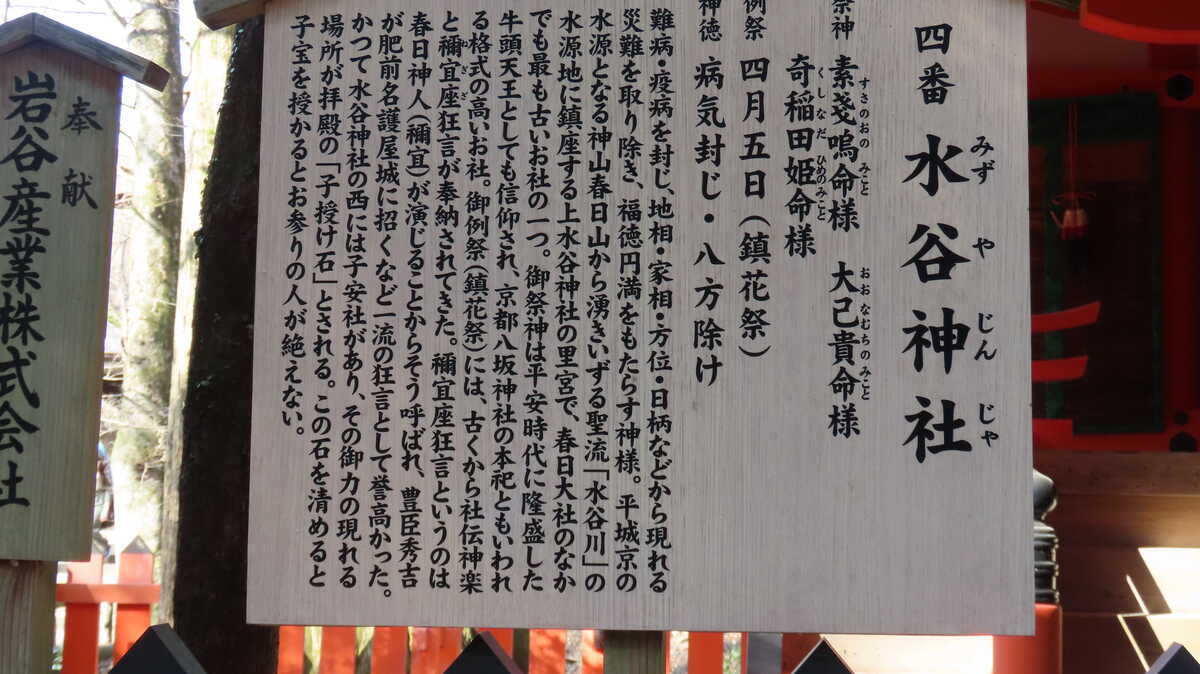 四番 水谷神社
みず や じん じゃ
祭神 素戔嗚命様 大己貴命様
すさのおの みこと おお なむちのみこと
奇稲田姫命様
くしなだ ひめのみこと
例祭 四月五日(鎮花祭)
神徳 病気封じ・八方除け
難病・疫病を封じ、地相・家相・方位・日柄などから現れる
災難を取り除き、福徳円満をもたらす神様。平城京の
水源となる神山春日山から湧きいずる聖流「水谷川」の
水源地に鎮座する上水谷神社の里宮で、春日大社のなか
でも最も古いお社の一つ。御祭神は平安時代に隆盛した
牛頭天王としても信仰され、京都八坂神社の本祀ともいわれ
る格式の高いお社。御例祭(鎮花祭)には、古くから社伝神楽
と禰宜座狂言が奉納されてきた。禰宜座狂言というのは
ねぎざ
春日神人(禰宜)が演じることからそう呼ばれ、豊臣秀吉
が肥前名護屋城に招くなど一流の狂言として誉高かった。
かつて水谷神社の西には子安社があり、その御力の現れる
場所が拝殿の「子授け石」とされる。この石を清めると
子宝を授かるとお参りの人が絶えない。
奉献
岩谷産業株式会社